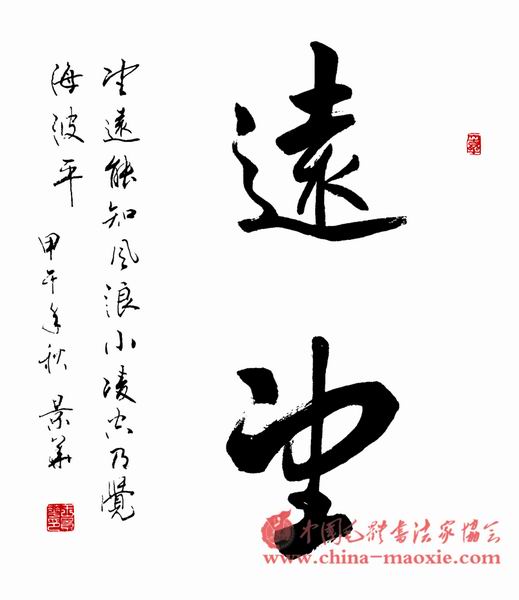 遠望
望遠能知風浪小凌空乃覺
海波平
甲午年秋 景華
中国毛体书法家协会
www.china-maoxie.com